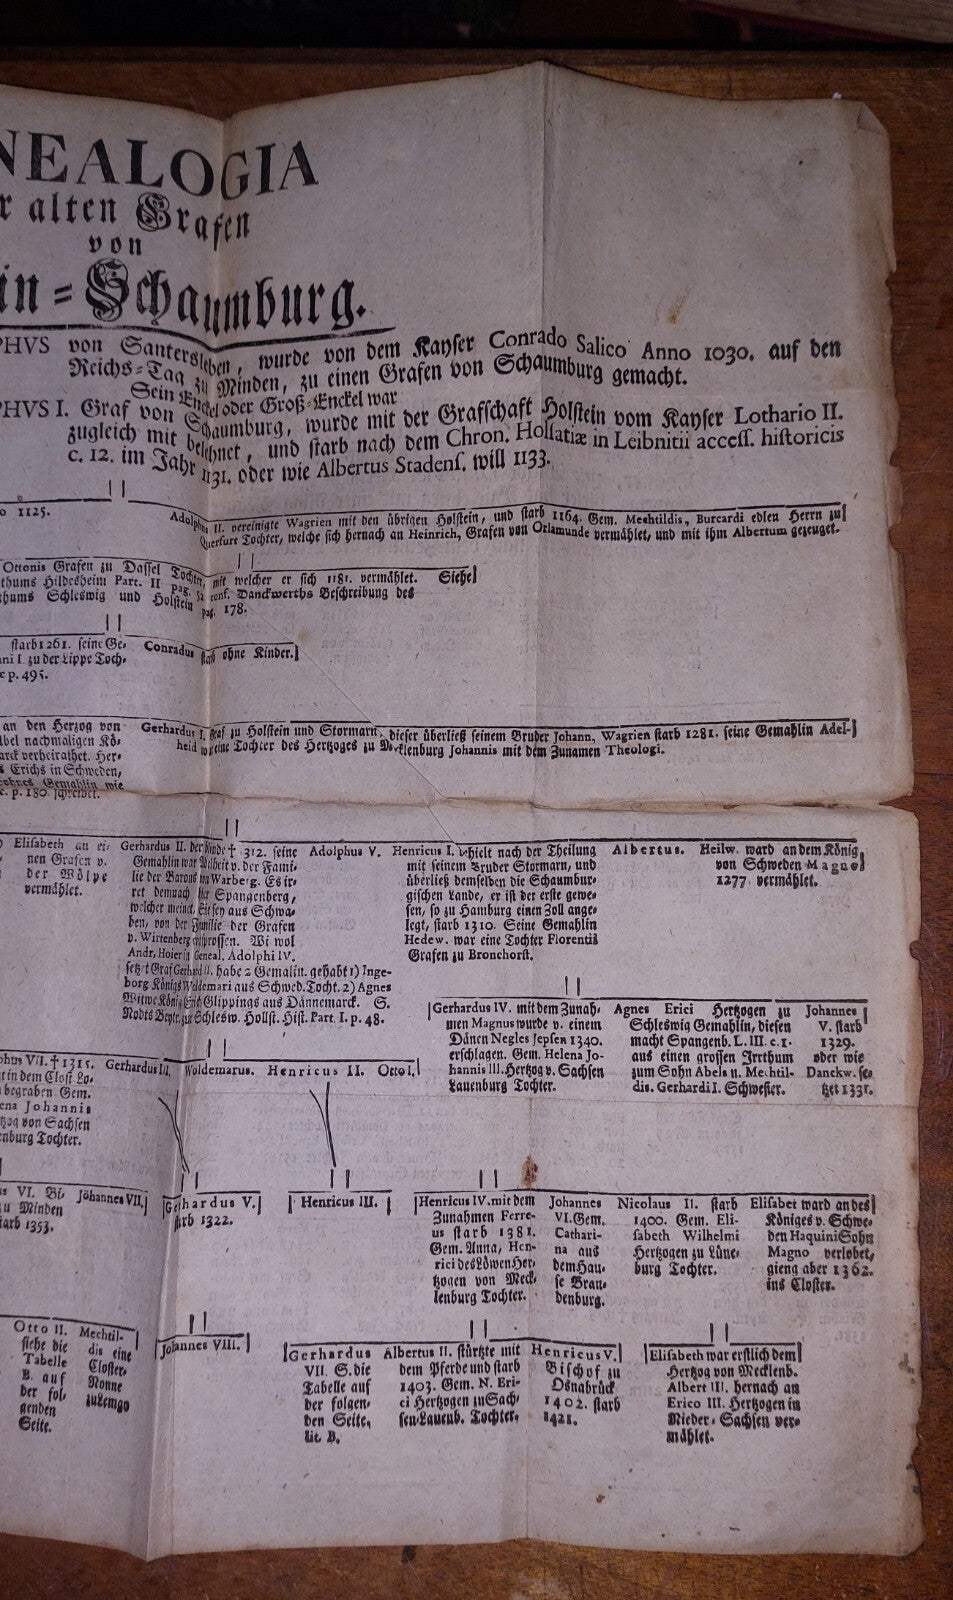 NEALOGIA
r alten Grafen
von
in-Schaumburg.
PHVS von Santersleben, wurde von dem Kayser Conrado Salico Anno 1030. auf den
Reichs-Tag zu Minden, zu einen Grafen von Schaumburg gemacht.
Sein Enckel oder Groß-Enckel war
PHVS I. Graf von Schaumburg, wurde mit der Grafschaft Holstein vom Kayser Lothario II.
zugleich mit belehnet, und starb nach dem Chron. Holsatiæ in Leibnitii access. historicis
c. 12. im Jahr 1131. oder wie Albertus Stadens. will 1133.
o 1125.
Adolphus II. vereinigte Wagrien mit den übrigen Holstein, und starb 1164. Gem. Mechtildis, Burcardi edlen Herrn zu
Querfurt Tochter, welche sich hernach an Heinrich, Grafen von Orlamunde vermählet, und mit ihm Albertum gezeuget.
Ottonis Grafen zu Dassel Tochter, mit welcher er sich 1181. vermählet. Siehe
thums Hildesheim Part. II pag. conf. Danckwerths Beschreibung des
thums Schleswig und Holstein pag. 178.
starb 1261. seine Ge-
ni I. zu der Lippe Toch-
p. 495.
Conradus starb ohne Kinder.
an den Herzog von
bel nachmaligen Kö-
arck verheirathet. Her-
s Erichs in Schweden,
Gemahlin wie
c. p. 180. schreibet.
Gerhardus I. Graf zu Holstein und Stormarn, dieser überließ seinem Bruder Johann, Wagrien starb 1281. seine Gemahlin Adel-
heid war eine Tochter des Hertzoges zu Mecklenburg Johannis mit dem Zunamen Theologi.
Elisabeth an ei-
nen Grafen v.
der Wölpe
vermählet.
Gerhardus II. der Blinde † 1312. seine
Gemahlin war Alheit v. der Fami-
lie der Baronen von Warberg. Es ir-
ret demnach Herr Spangenberg,
welcher meinet, sie sey aus Schwa-
ben, von der Familie der Grafen
v. Wirtenberg entsprossen. Wi wol
Andr. Hoier in Geneal. Adolphi IV.
setzet Graf Gerhard II. habe 2 Gemalin. gehabt 1) Inge-
borg Königs Woldemari aus Schwed. Tocht. 2) Agnes
Witwe König Erich Glippings aus Dännemarck. S.
Nodts Beytr. zur Schlesw. Hollst. Hist. Part. I. p. 48.
Adolphus V.
Henricus I. behielt nach der Theilung
mit seinem Bruder Stormarn, und
überließ demselben die Schaumbur-
gischen Lande, er ist der erste gewe-
sen, so zu Hamburg einen Zoll ange-
legt, starb 1310. Seine Gemahlin
Hedew. war eine Tochter Florentii
Grafen zu Bronchorst.
Albertus.
Heilw. ward an dem König
von Schweden Magno
1277 vermählet.
Gerhardus IV. mit dem Zunah-
men Magnus wurde v. einem
Dänen Negles Jepsen 1340.
erschlagen. Gem. Helena Jo-
hannis III. Hertzog v. Sachsen
Lauenburg Tochter.
Agnes Erici Hertzogen zu
Schleswig Gemahlin, diesen
macht Spangenb. L. III. c. 1.
aus einen grossen Irrthum
zum Sohn Abels u. Mechtil-
dis. Gerhardi I. Schwester.
Johannes
V. starb
1329.
oder wie
Danckw. se-
tzet 1331.
phus VII. † 1315.
t in dem Clost Lo-
begraben. Gem.
ena Johannis
tzog von Sachsen
enburg Tochter.
Gerhardus III.
Woldemarus.
Henricus II.
Otto I.
us VI. Bi-
zu Minden
tarb 1353.
Johannes VII.
Gerhardus V.
starb 1322.
Henricus III.
Henricus IV. mit dem
Zunahmen Ferre-
us starb 1381.
Gem. Anna, Hen-
rici des Löwen Her-
tzogen von Meck-
lenburg Tochter.
Johannes
VI. Gem.
Cathari-
na aus
dem Hau-
se Bran-
denburg.
Nicolaus II. starb
1400. Gem. Eli-
sabeth Wilhelmi
Hertzogen zu Lüne-
burg Tochter.
Elisabet ward an des
Königes v. Schwe-
den Haquini Sohn
Magno verlobet,
gieng aber 1362.
ins Closter.
Otto II.
siehe die
Tabelle
B. auf
der fol-
genden
Seite.
Mechtil-
dis eine
Closter-
Nonne
zu Lemgo
Johannes VIII.
Gerhardus
VII. S. die
Tabelle auf
der folgen-
den Seite,
lit B.
Albertus II. stürtzte mit
dem Pferde und starb
1403. Gem. N. Eri-
ci Hertzogen zu Sach-
sen Lauenb. Tochter.
Henricus V.
Bischof zu
Osnabrück
1402. starb
1421.
Elisabeth war erstlich dem
Hertzog von Mecklenb.
Albert III. hernach an
Erico III. Hertzogen in
Nieder-Sachsen ver-
mählet.